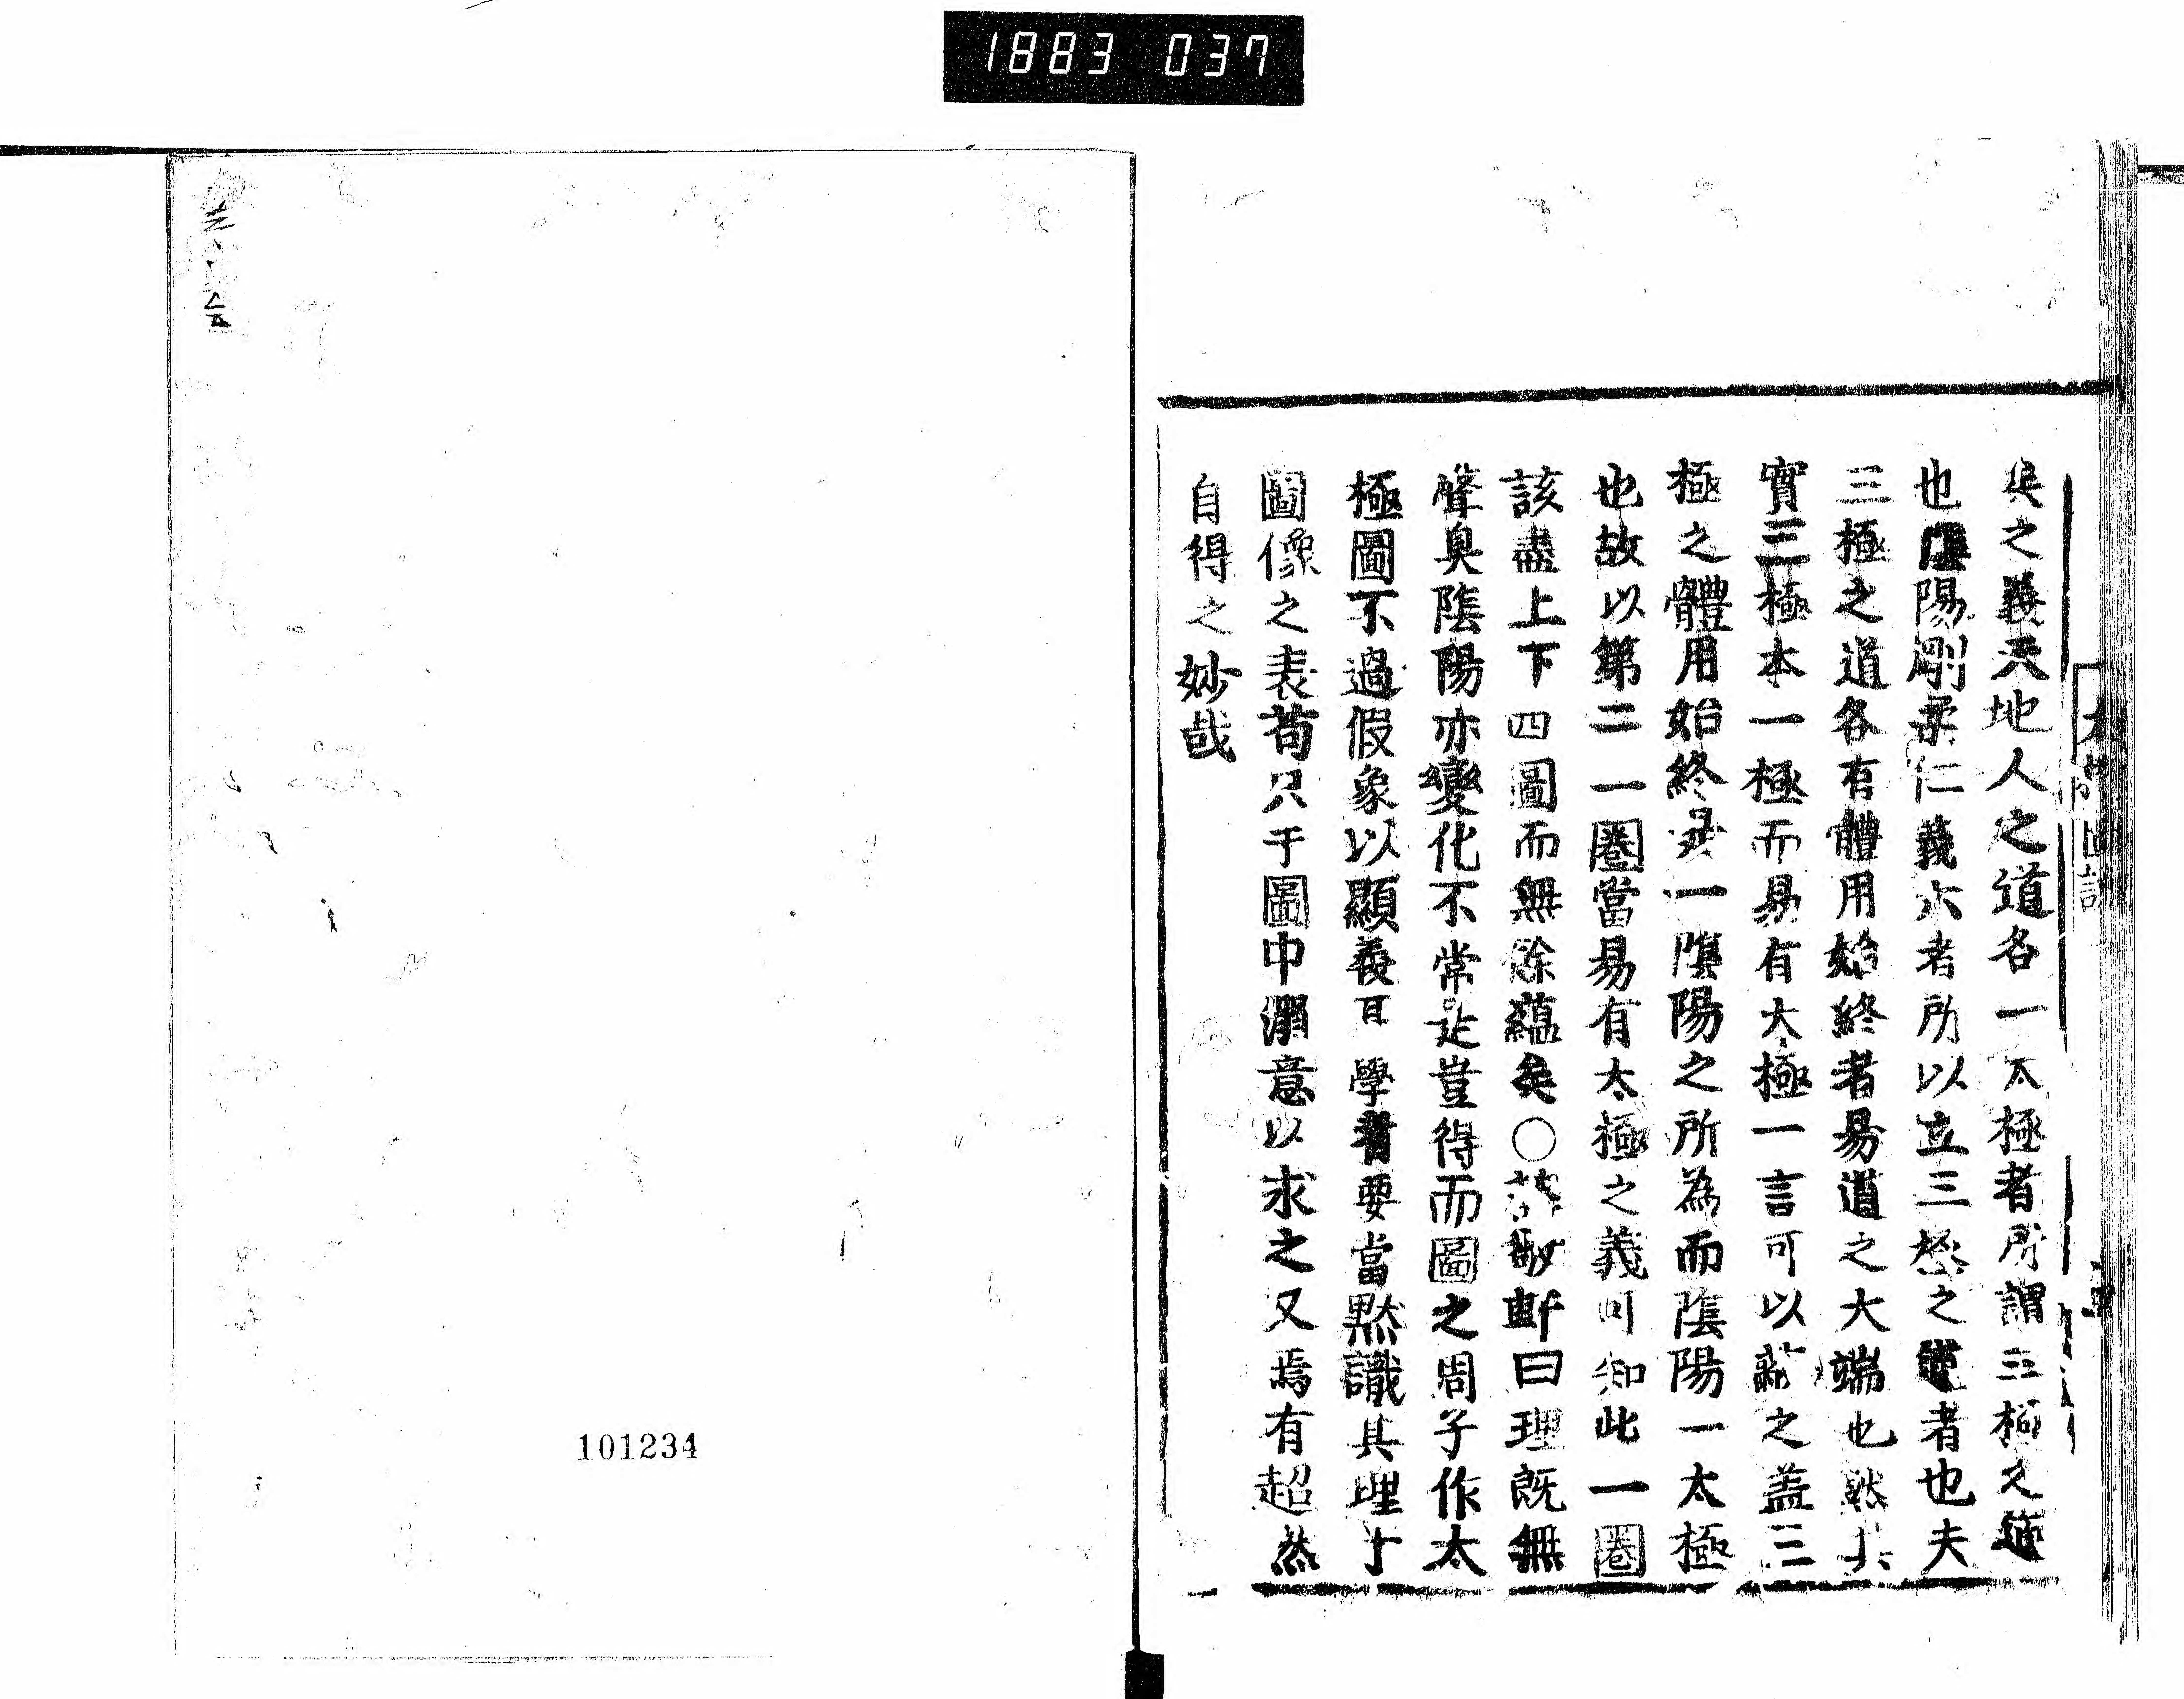 1883 037
矣之義天地人之道各一太極者所謂三極之道
也陰陽剛柔仁義六者所以立三極之道者也夫
三極之道各有體用始終者易道之大端也然其
實三極本一極而易有大極一言可以蔽之盖三
極之體用始終是一陰陽之所為而陰陽一太極
也故以第二一圈當易有太極之義可知此一圈
該盡上下四圖而無餘蘊矣○敬斷曰理既無
聲臭陰陽亦變化不常是豈得而圖之周子作太
極圖不過假象以顯義耳學者要當黙識其理于
圖像之表苟只于圖中溺意以求之又焉有超然
自得之妙哉
101234